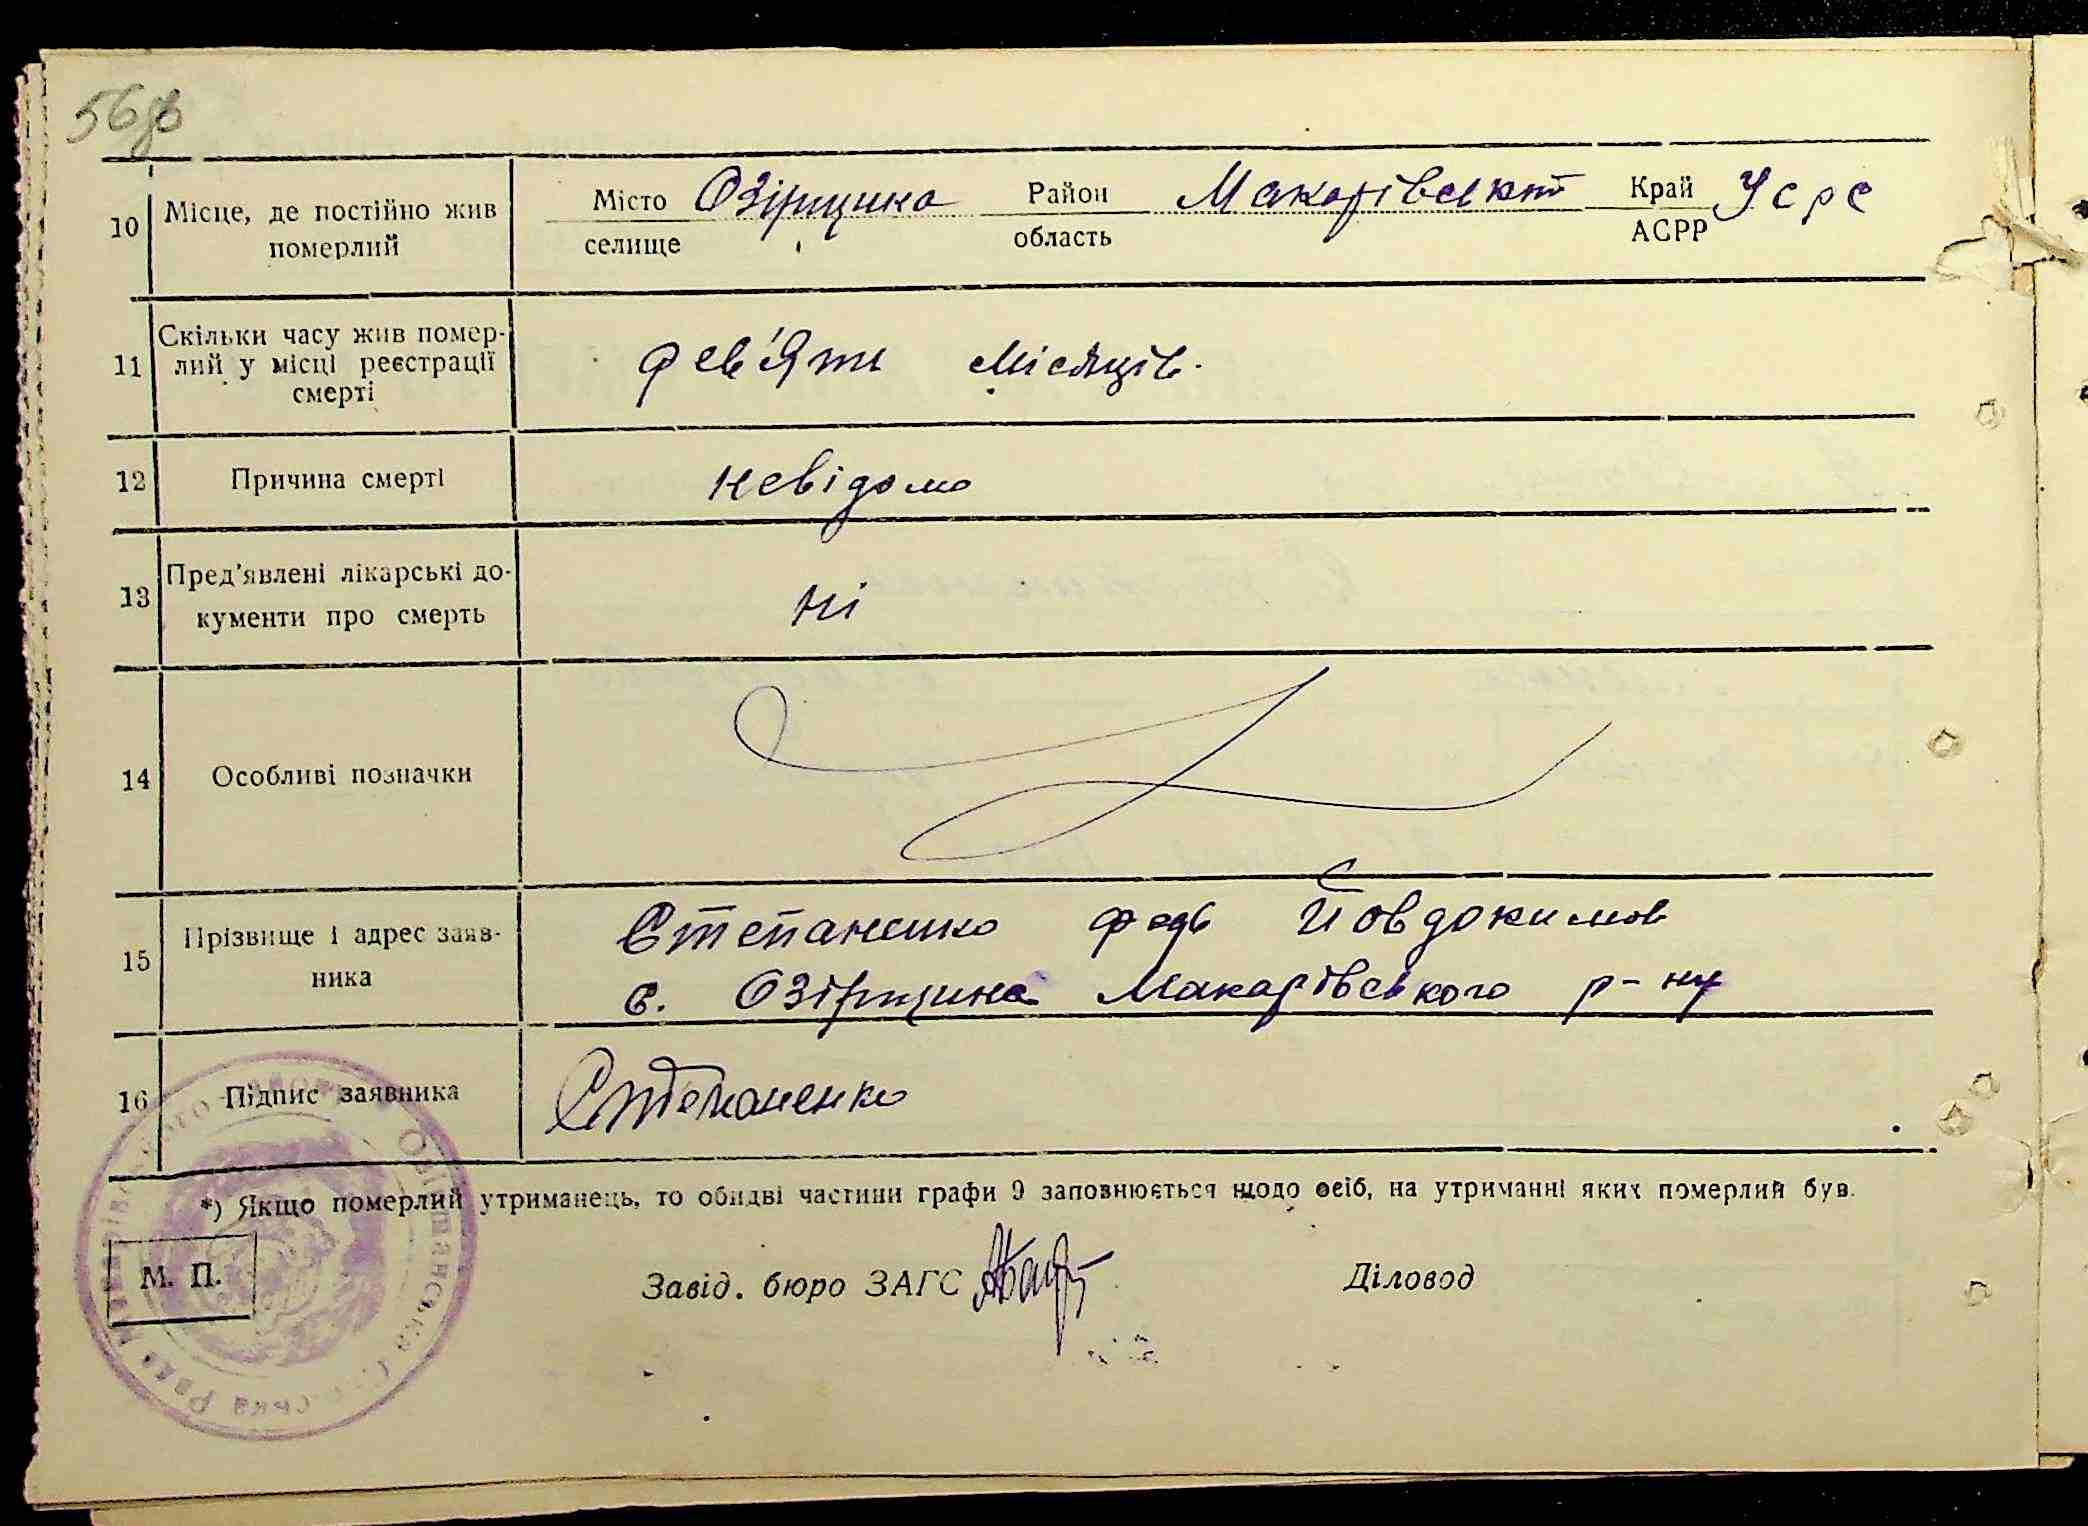 56
10 Місце, де постійно жив померлий
Місто Озірщина Район Макарівський Край Усрс
селище область АСРР
11 Скільки часу жив помер-
лий у місці реєстрації
смерті
дев'ять місяців.
12 Причина смерті невідома
13 Пред'явлені лікарські до-
кументи про смерть
ні
14 Особливі позначки
15 Прізвище і адрес заяв-
ника
Степаненко Йовдоким
с. Озірщина Макарівського р-ну
16 Підпис заявника Степаненко
*) Якщо померлий утриманець, то обидві частини графи 9 заповнюється щодо осіб, на утриманні яких померлий був.
М. П. Завід. бюро ЗАГС Діловод